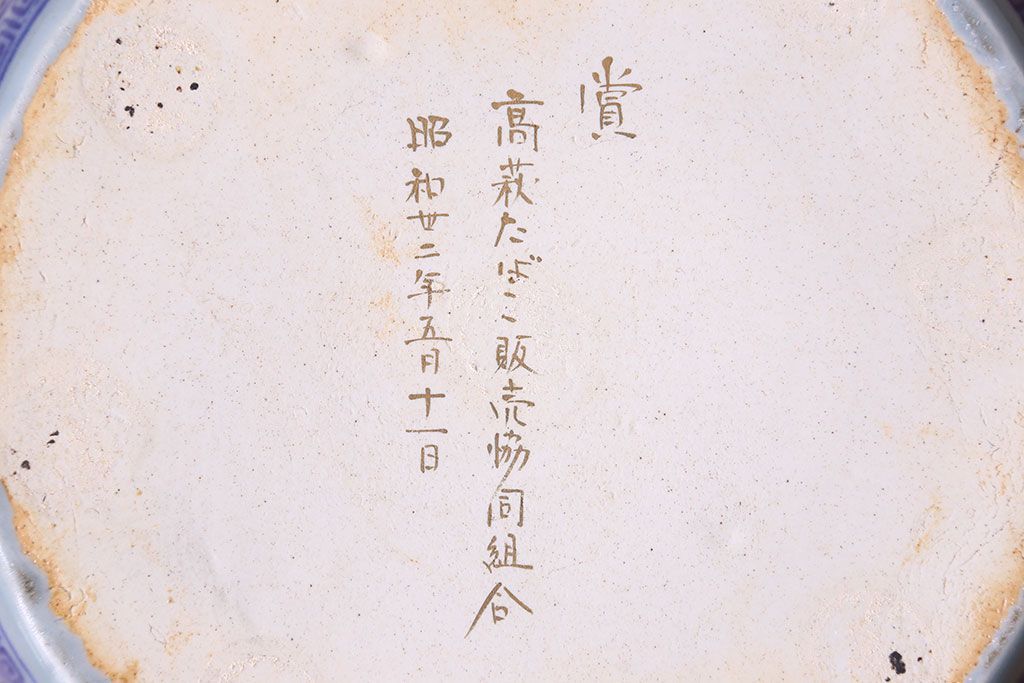 賞
高萩たばこ販売協同組合
昭和卅二年五月十一日